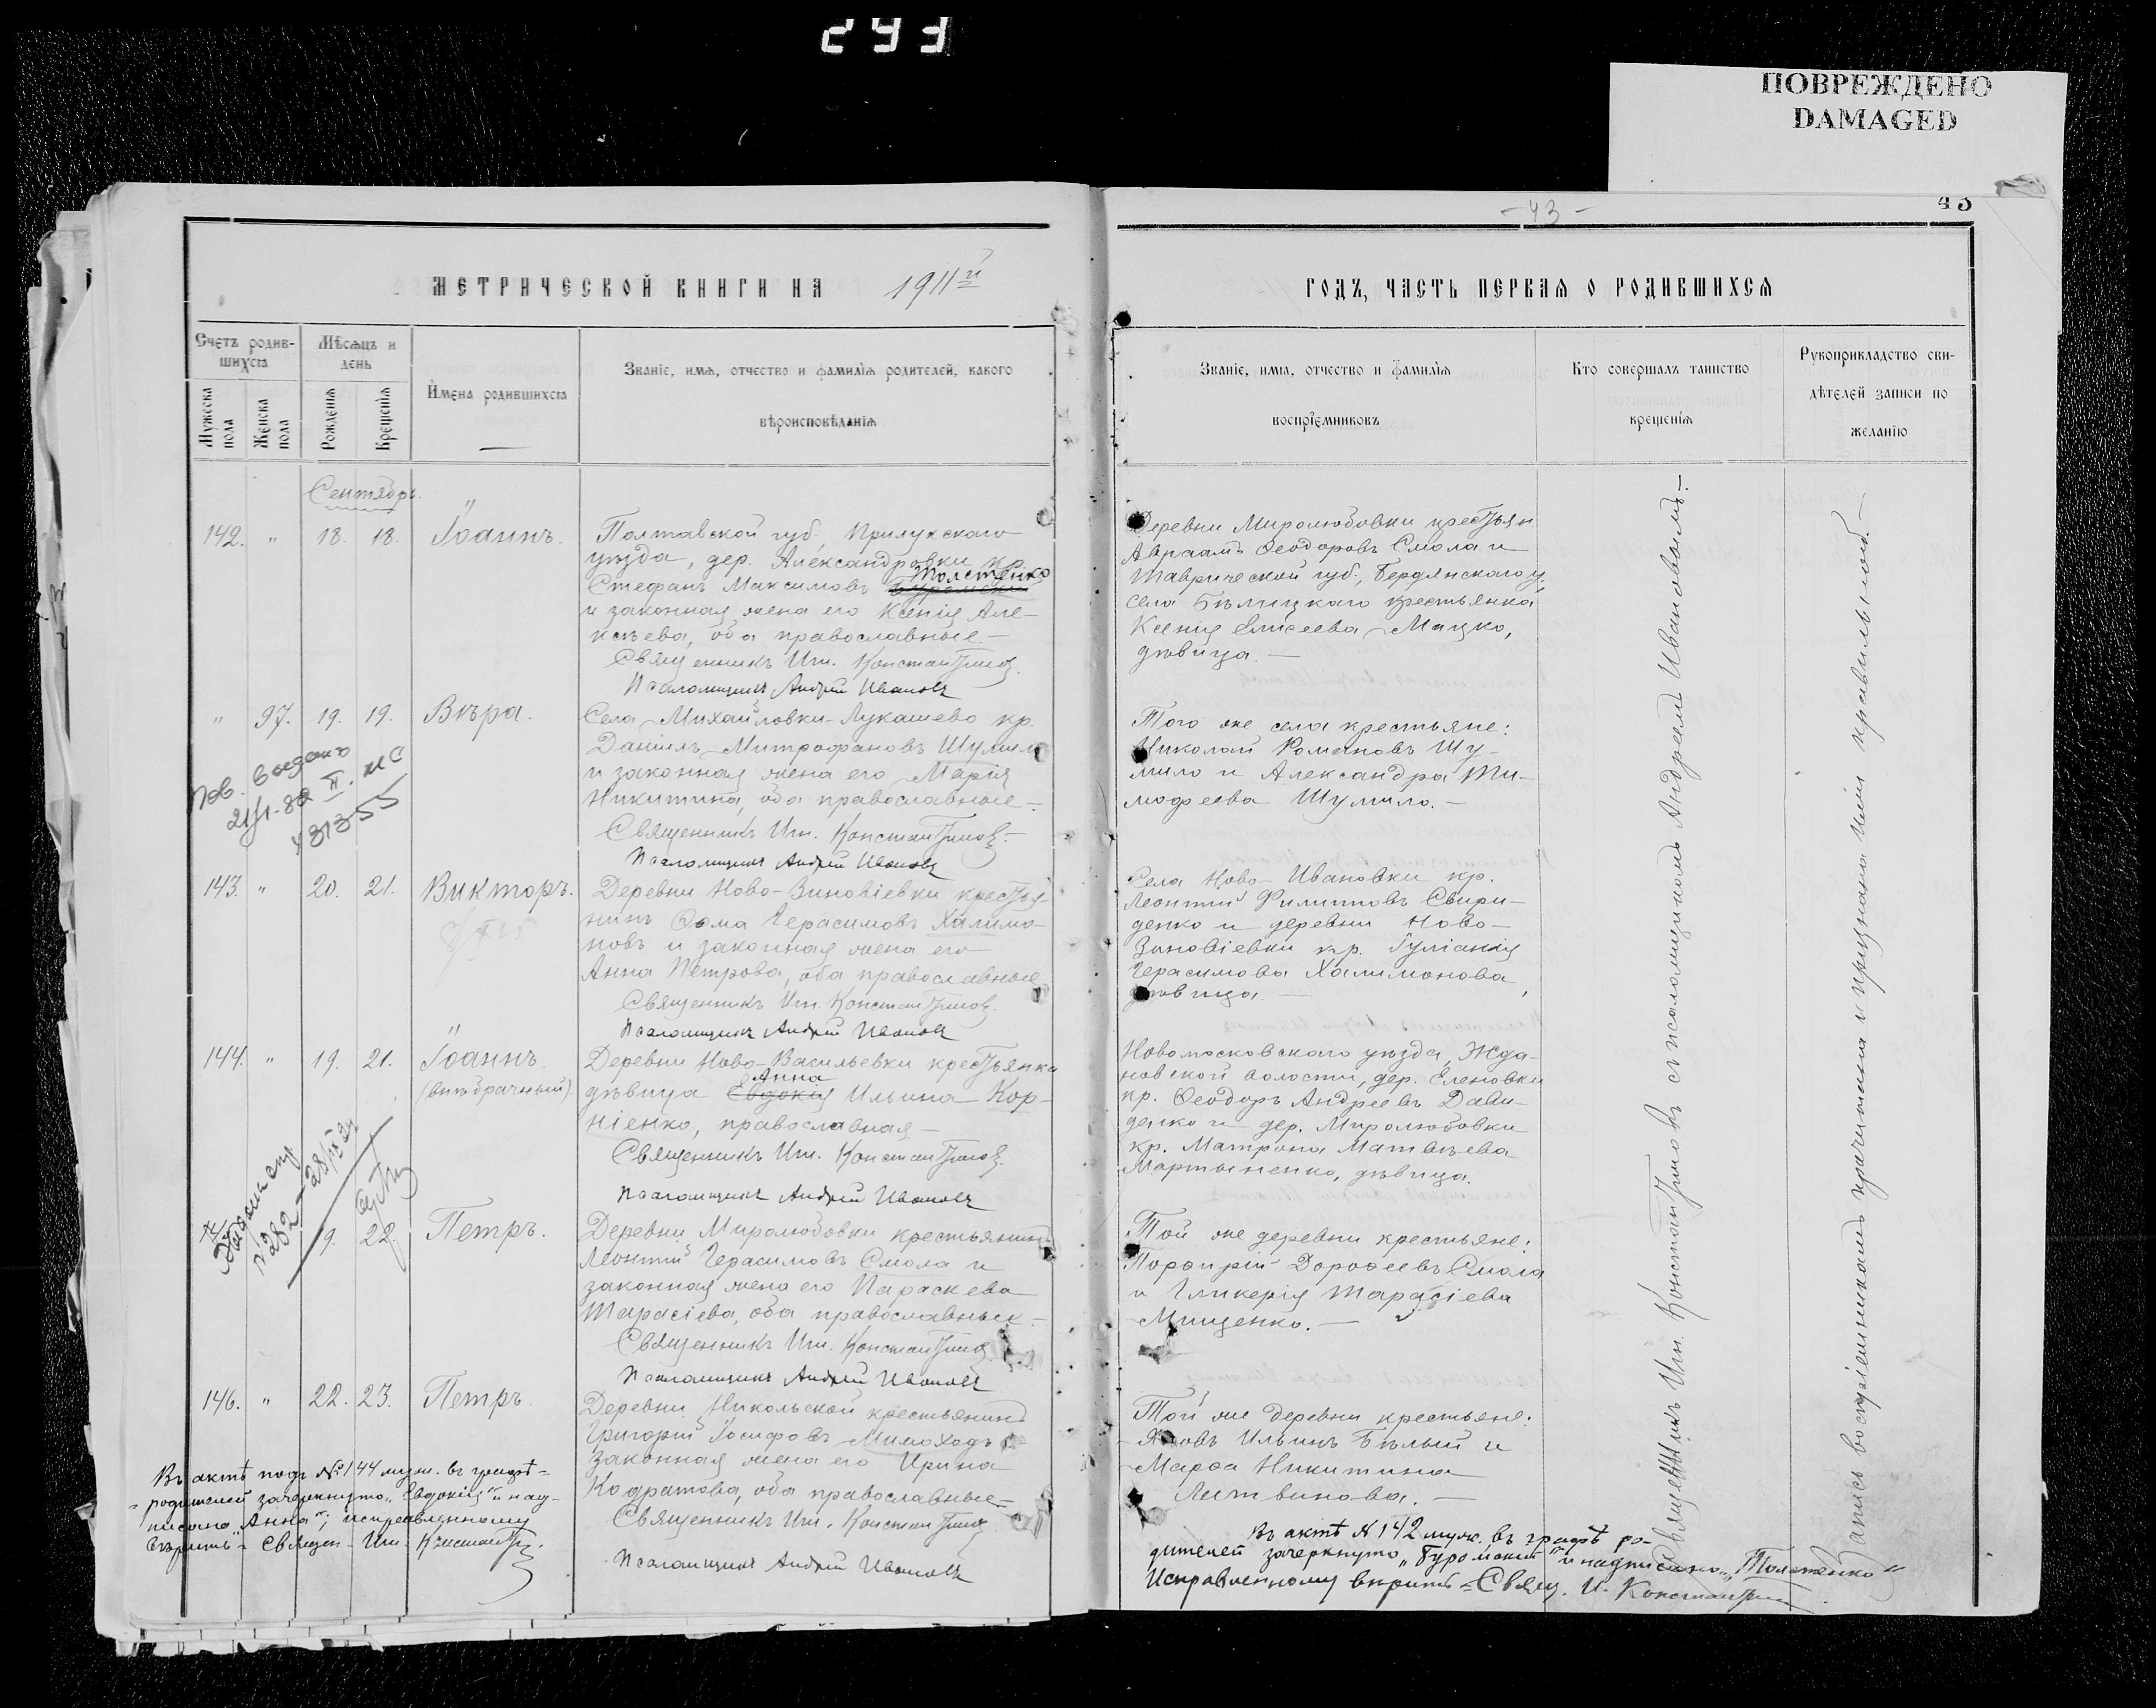 293
ПОВРЕЖДЕНО
DAMAGED
- 43 -
43
МЕТРИЧЕСКОЙ КНИГИ НА 1911й
ГОДЪ, ЧАСТЬ ПЕРВАЯ О РОДИВШИХСЯ
Счетъ родив-
шихся
Мѣсяцъ и
день
Мужеска пола
Женска пола
Рожденія
Крещенія
Имена родившихся
Званіе, имя, отчество и фамилія родителей, какого
вѣроисповѣданія
Званіе, имя, отчество и фамилія
воспріемниковъ
Кто совершалъ таинство
крещенія
Рукоприкладство сви-
дѣтелей записи по
желанію
Сентябрь.
142. " 18. 18. Іоаннъ.
Полтавской губ. Прилукскаго
уѣзда, дер. Александровки кр.
Толстенко
Стефанъ Максимовъ
и законная жена его Ксенія Але-
ксѣева, оба православные.-
Священникъ Ип. Константиновъ.
Псаломщикъ Андрей Ивановъ
Деревни Миролюбовки крестьян.
Авраамъ Ѳеодоровъ Смола и
Таврической губ., Бердянскаго у.
села Бѣлицкаго крестьянка
Ксенія Елисеева Мацко,
дѣвица.-
" 97. 19. 19. Вѣра.
Села Михайловки-Лукашево кр.
Даніилъ Митрофановъ Шумило
и законная жена его Марія
Никитина, оба православные.-
Священникъ Ип. Константиновъ.-
Псаломщикъ Андрей Ивановъ
Того же села крестьяне:
Николай Романовъ Шу-
мило и Александра Ти-
моѳеева Шумило.-
Пов. выдано
21/1-82 II. ЖС
431355
143. " 20. 21. Викторъ.
Деревни Ново-Зиновіевки крестья-
нинъ Ѳома Герасимовъ Халимо-
новъ и законная жена его
Анна Петрова, оба православные
Священникъ Ип. Константиновъ.
Псаломщикъ Андрей Ивановъ
Села Ново-Ивановки кр.
Леонтій Филипповъ Свири-
денко и деревни Ново-
Зиновіевки кр. Іуліанія
Герасимова Халимонова
дѣвица.-
144. " 19. 21. Іоаннъ
(внѣбрачный)
Деревни Ново-Васильевки крестьянка
Анна
дѣвица Евдокія Ильина Кор-
ніенко, православная-
Священникъ Ип. Константиновъ.
Псаломщикъ Андрей Ивановъ
Новомосковскаго уѣзда, Жда-
новской волости, дер. Еленовки
кр. Ѳеодоръ Андреевъ Дави-
денко и дер. Миролюбовки
кр. Матрона Матвѣева
Мартыненко, дѣвица.
22. Петръ.
Деревни Миролюбовки крестьянинъ
Леонтій Герасимовъ Смола и
законная жена его Параскева
Тарасіева, оба православные.-
Священникъ Ип. Константиновъ
Псаломщикъ Андрей Ивановъ
Той же деревни крестьяне:
Порфирій Дороѳеевъ Смола
и Гликерія Тарасіева
Мищенко.-
146. " 22. 23. Петръ.
Деревни Никольской крестьянинъ
Григорій Іосифовъ Мимоходъ и
законная жена его Ирина
Кодратова, оба православные-
Священникъ Ип. Константиновъ
Псаломщикъ Андрей Ивановъ
Той же деревни крестьяне:
Яковъ Ильинъ Бѣлый и
Марѳа Никитина
Литвинова.-
Въ актѣ подъ №144 муж. въ графѣ-
-родителей зачеркнуто "Евдокія" и над-
писано "Анна"; исправленному
вѣрить- Священ. Ип. Константиновъ.
Въ актѣ №142 муж. въ графѣ ро-
дителей зачеркнуто и надписано "Толстенко"
Исправленному вѣрить- Свящ. И. Константиновъ.
Священникъ Ип. Константиновъ съ псаломщикомъ Андреемъ Ивановымъ.-
Запись воспріемникамъ прочитана и признана ими правильною.-